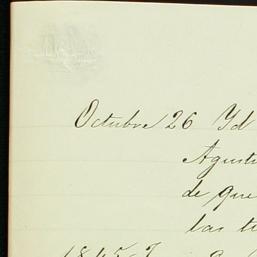 Octubre 26 Yd
Agusti
de que
las t
1845